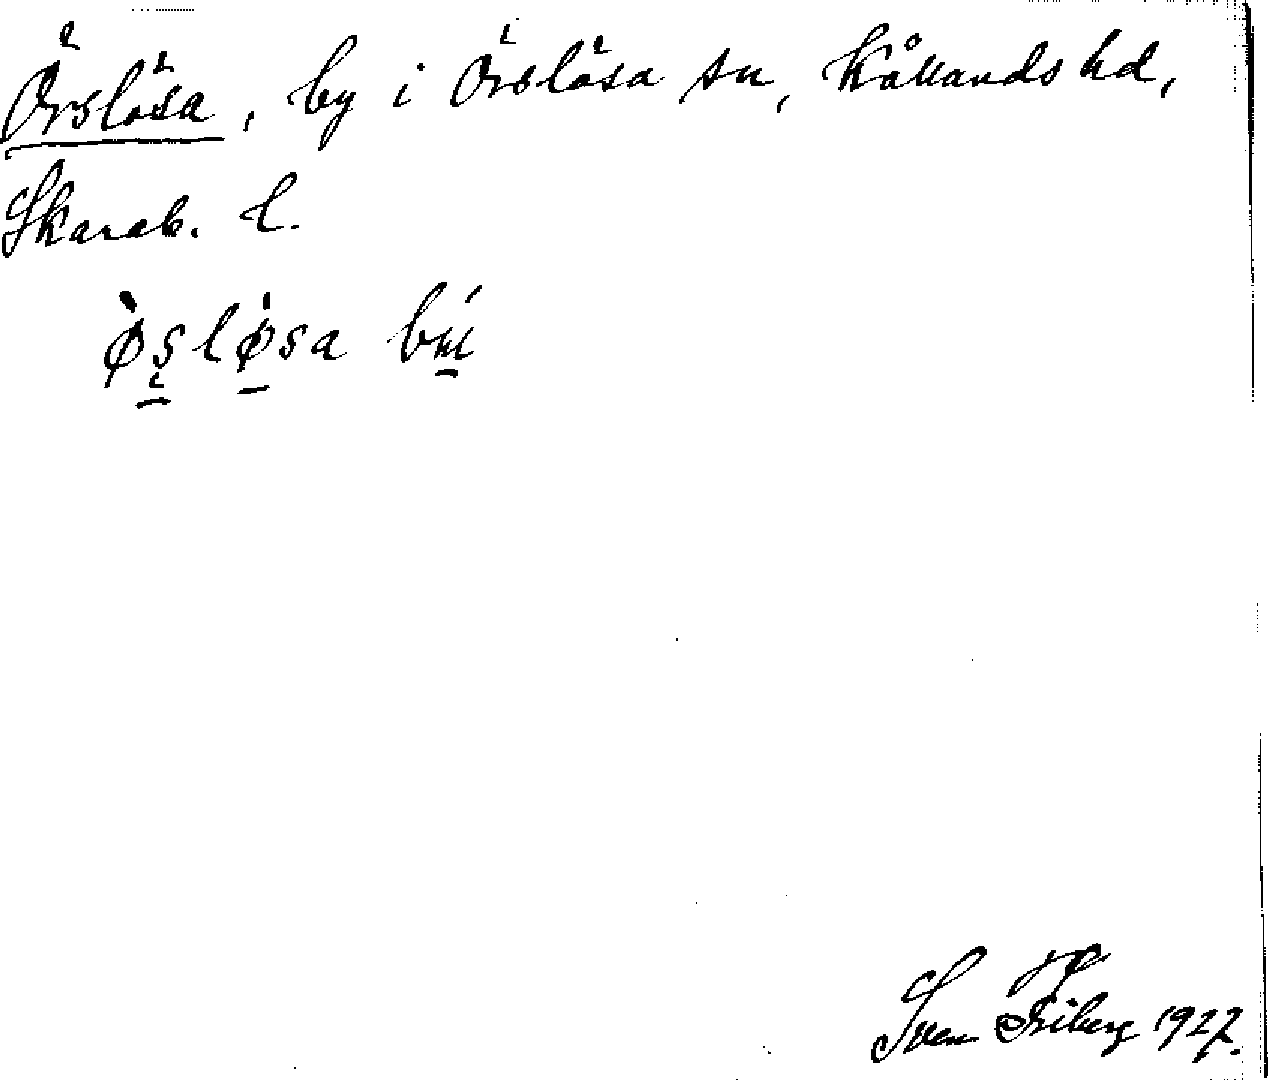 Örslösa, by i Örslösa sn, Kållands hd,
Skarab. l.
Sven Friberg 1927.